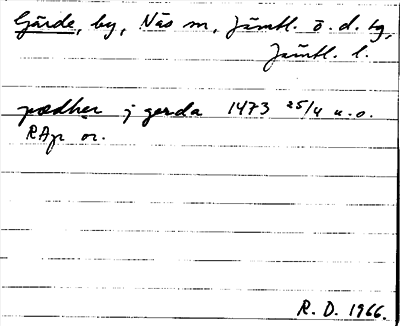 Gärde, by, Näs sn, Jämtl. ö. d. tg,
Jämtl. l.
pædher j gerda 1473 25/4 u.o.
RAp or.
R. D. 1966.